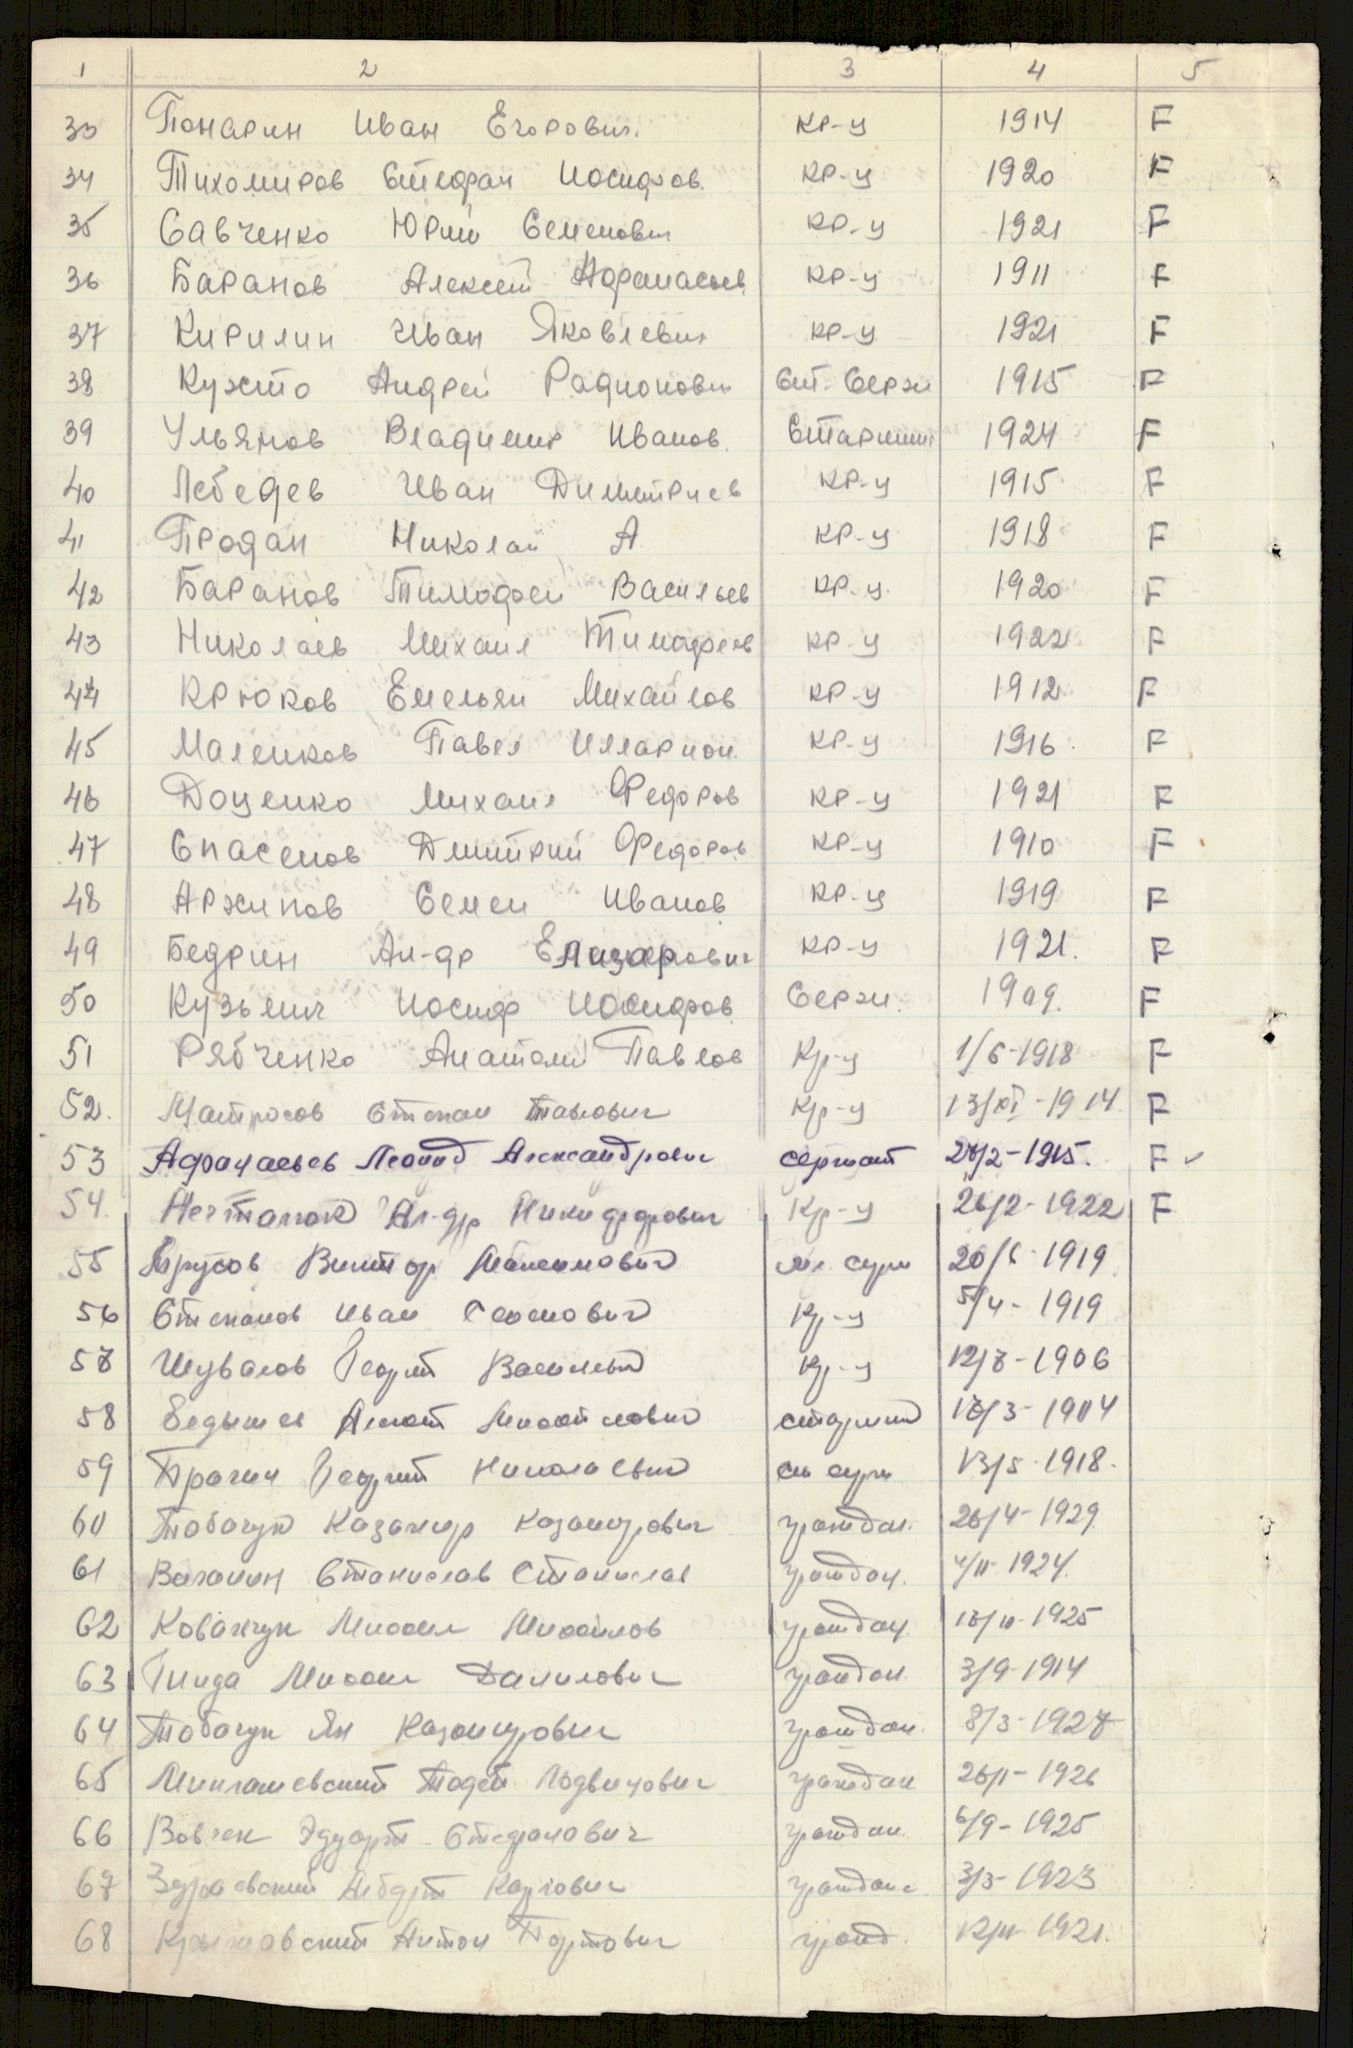 1 2 3 4 5
33 Понарин Иван Егорович КР-ц 1914 F
34 Тихомиров Стефан Иосифов. КР-ц 1920 F
35 Савченко Юрий Семенович КР-ц 1921 F
36 Баранов Алексей Афанасьев КР-ц 1911 F
37 Кирилин Иван Яковлевич КР-ц 1921 F
38 Андрей Радионович Ст. Серж 1915 F
39 Ульянов Владимир Иванов. Старшин 1924 F
40 Лебедев Иван Димитриев КР-ц 1915 F
41 Продан Николай А КР-ц 1918 F
42 Баранов Тимофей Васильев КР-ц. 1920 F
43 Николаев Михаил Тимофеев КР-ц 1922 F
44 Крюков Емельян Михайлов КР-ц 1912 F
45 Маленков Павел Илларион. КР-ц 1916 F
46 Доценко Михаил Федоров КР-ц 1921 F
47 Спасенов Дмитрий Федоров КР-ц 1910 F
48 Архипов Семен Иванов КР-ц 1919 F
49 Бедрин Ал-др Елизарович КР-ц 1921. F
50 Кузьмич Иосиф Иосифов Серж. 1909. F
51 Рябченко Анатолий Павлов Кр-ц 1/6-1918 F
52. Матросов Степан Павлович Кр-ц 13/XI-1914 F
53 Афанасьев Леонид Александрович сержант 1915. F
54. Ал-др Никифорович Кр-ц 26/2-1922 F
55 Трусов Виктор Максимович мл. серж 20/6-1919
56 Степанов Иван Семенович Кр-ц 5/4-1919
57 Шувалов Георгий Васильевич Кр-ц 12/7-1906
58 Михайлович старшин 1904
59 Брагин Георгий Николаевич серж 13/5-1918.
60 Тобачук Казимир Казимирович граждан. 26/4-1929
61 Станислав Станислав граждан. 1924.
62 Ковальчук Михаил Михайлов граждан. 1925
63 Михаил Данилович граждан. 3/9-1914
64 Тобачук Ян Казимирович граждан. 8/3-1927
65 Тадей Людвигович граждан 1926
66 Вовчек Эдуард Стефанович граждан. 6/9-1925
67 Карлович граждан. 1923
68 Антон гражд. 1921.